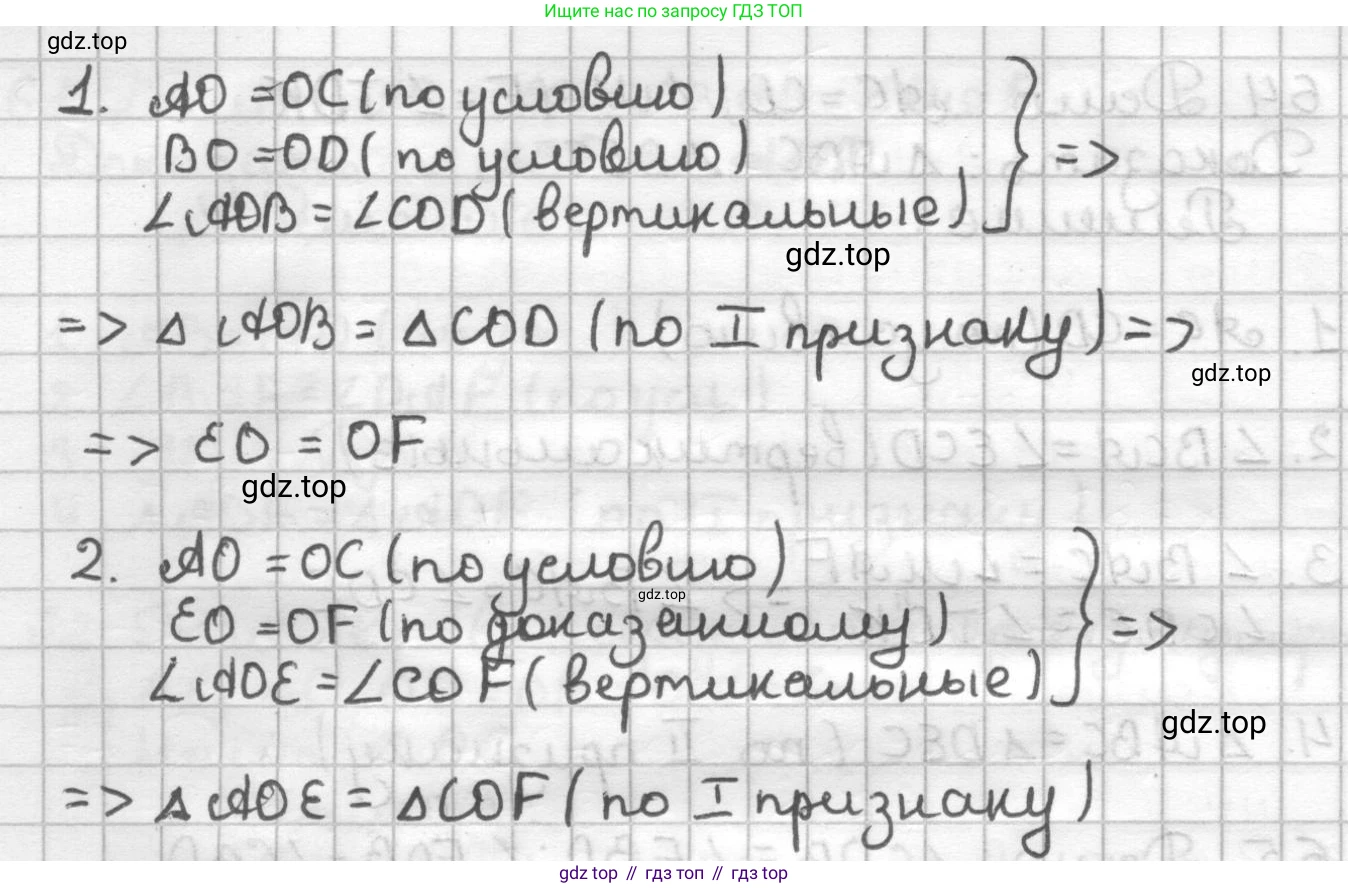 Ищите нас по запросу ГДЗ ТОП
gdz.top
1. AO = OC (по условию)
BO = OD (по условию)
∠AOB = ∠COD (вертикальные) } =>
gdz.top
=> Δ AOB = Δ COD (по I признаку) =>
gdz.top
=> EO = OF
gdz.top
2. AO = OC (по условию)
gdz.top
EO = OF (по доказанному)
∠AOE = ∠COF (вертикальные) } =>
gdz.top
=> Δ AOE = Δ COF (по I признаку)
gdz top // гдз топ // gdz top